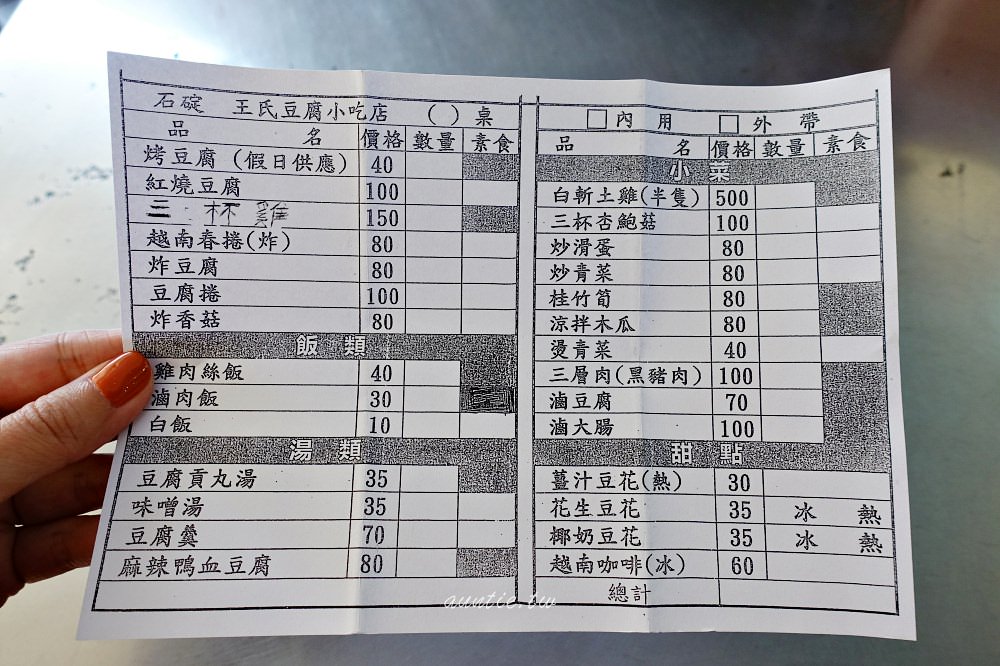 石碇 王氏豆腐小吃店 ( ) 桌
品 名 價格 數量 素食
烤豆腐 (假日供應) 40
紅燒豆腐 100
三杯雞 150
越南春捲(炸) 80
炸豆腐 80
豆腐捲 100
炸香菇 80
飯類
雞肉絲飯 40
滷肉飯 30
白飯 10
湯類
豆腐貢丸湯 35
味噌湯 35
豆腐羹 70
麻辣鴨血豆腐 80
□內用 □外帶
品 名 價格 數量 素食
小菜
白斬土雞(半隻) 500
三杯杏鮑菇 100
炒滑蛋 80
炒青菜 80
桂竹筍 80
涼拌木瓜 80
燙青菜 40
三層肉(黑豬肉) 100
滷豆腐 70
滷大腸 100
甜點
薑汁豆花(熱) 30
花生豆花 35 冰 熱
椰奶豆花 35 冰 熱
越南咖啡(冰) 60
總計
auntie.tw